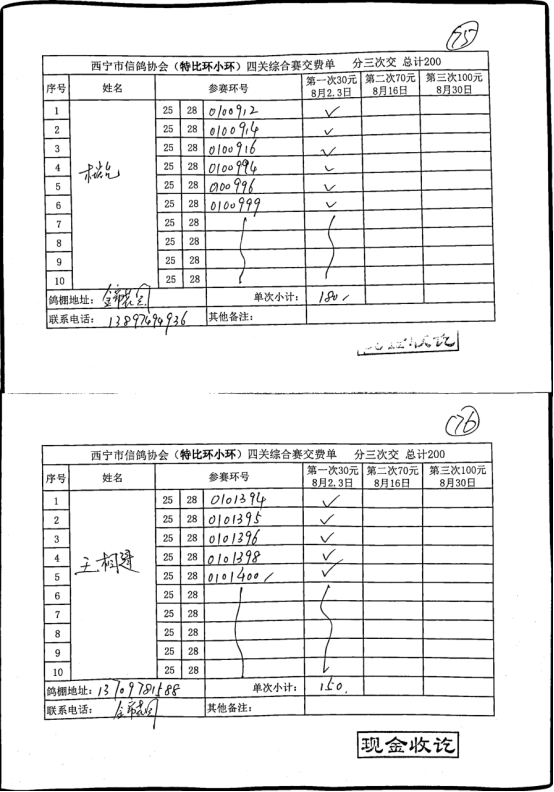 75
西宁市信鸽协会（特比环小环）四关综合赛交费单 分三次交 总计200
序号 姓名 参赛环号 第一次30元 8月2.3日 第二次70元 8月16日 第三次100元 8月30日
1 25 28 0100912 ✓
2 25 28 0100914 ✓
3 25 28 0100916 ✓
4 25 28 0100994 ✓
5 25 28 0100996 ✓
6 25 28 0100999 ✓
7 25 28
8 25 28
9 25 28
10 25 28
鸽棚地址： 单次小计： 180
联系电话： 13897494936 其他备注：
76
西宁市信鸽协会（特比环小环）四关综合赛交费单 分三次交 总计200
序号 姓名 参赛环号 第一次30元 8月2.3日 第二次70元 8月16日 第三次100元 8月30日
1 25 28 0101394 ✓
2 25 28 0101395 ✓
3 25 28 0101396 ✓
4 王 25 28 0101398 ✓
5 25 28 0101400 ✓
6 25 28
7 25 28
8 25 28
9 25 28
10 25 28
鸽棚地址： 13709781588 单次小计： 150.
联系电话： 其他备注：
现金收讫